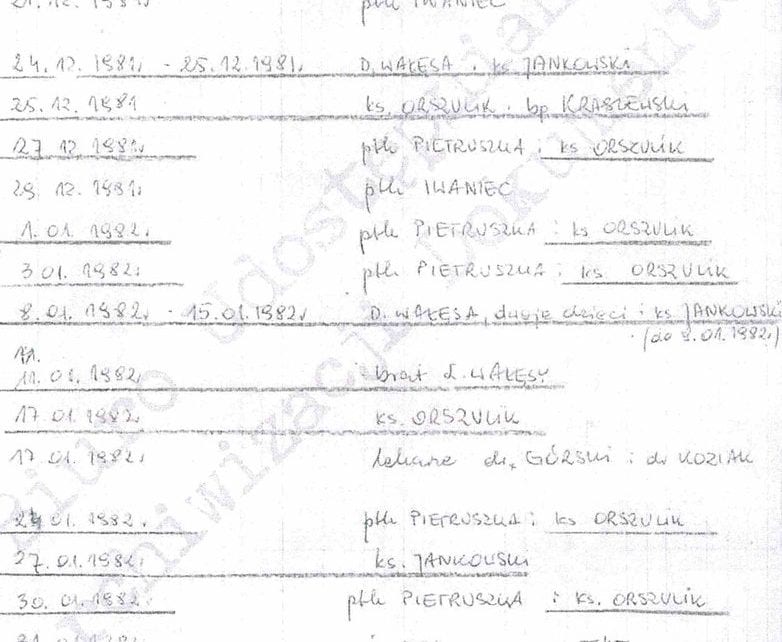 21.12.1981r płk IWANIEC
24.12.1981r - 25.12.1981r D. WAŁĘSA i ks. JANKOWSKI
25.12.1981 ks. ORSZULIK i bp KRASZEWSKI
27.12.1981r płk PIETRUSZKA i ks ORSZULIK
29.12.1981r płk IWANIEC
1.01.1982r płk PIETRUSZKA i ks ORSZULIK
3.01.1982r płk PIETRUSZKA i ks. ORSZULIK
8.01.1982r - 15.01.1982r D. WAŁĘSA, dwoje dzieci i ks JANKOWSKI
(do 9.01.1982r)
11.
11.01.1982r brat L. WAŁĘSY
17.01.1982r ks. ORSZULIK
17.01.1982r lekarze dr. GÓRSKI i dr KOZIAK
24.01.1982r płk PIETRUSZKA i ks ORSZULIK
27.01.1982r ks. JANKOWSKI
30.01.1982r płk PIETRUSZKA i ks. ORSZULIK
Biuro Udostępniania
Archiwizacji Dokumentów